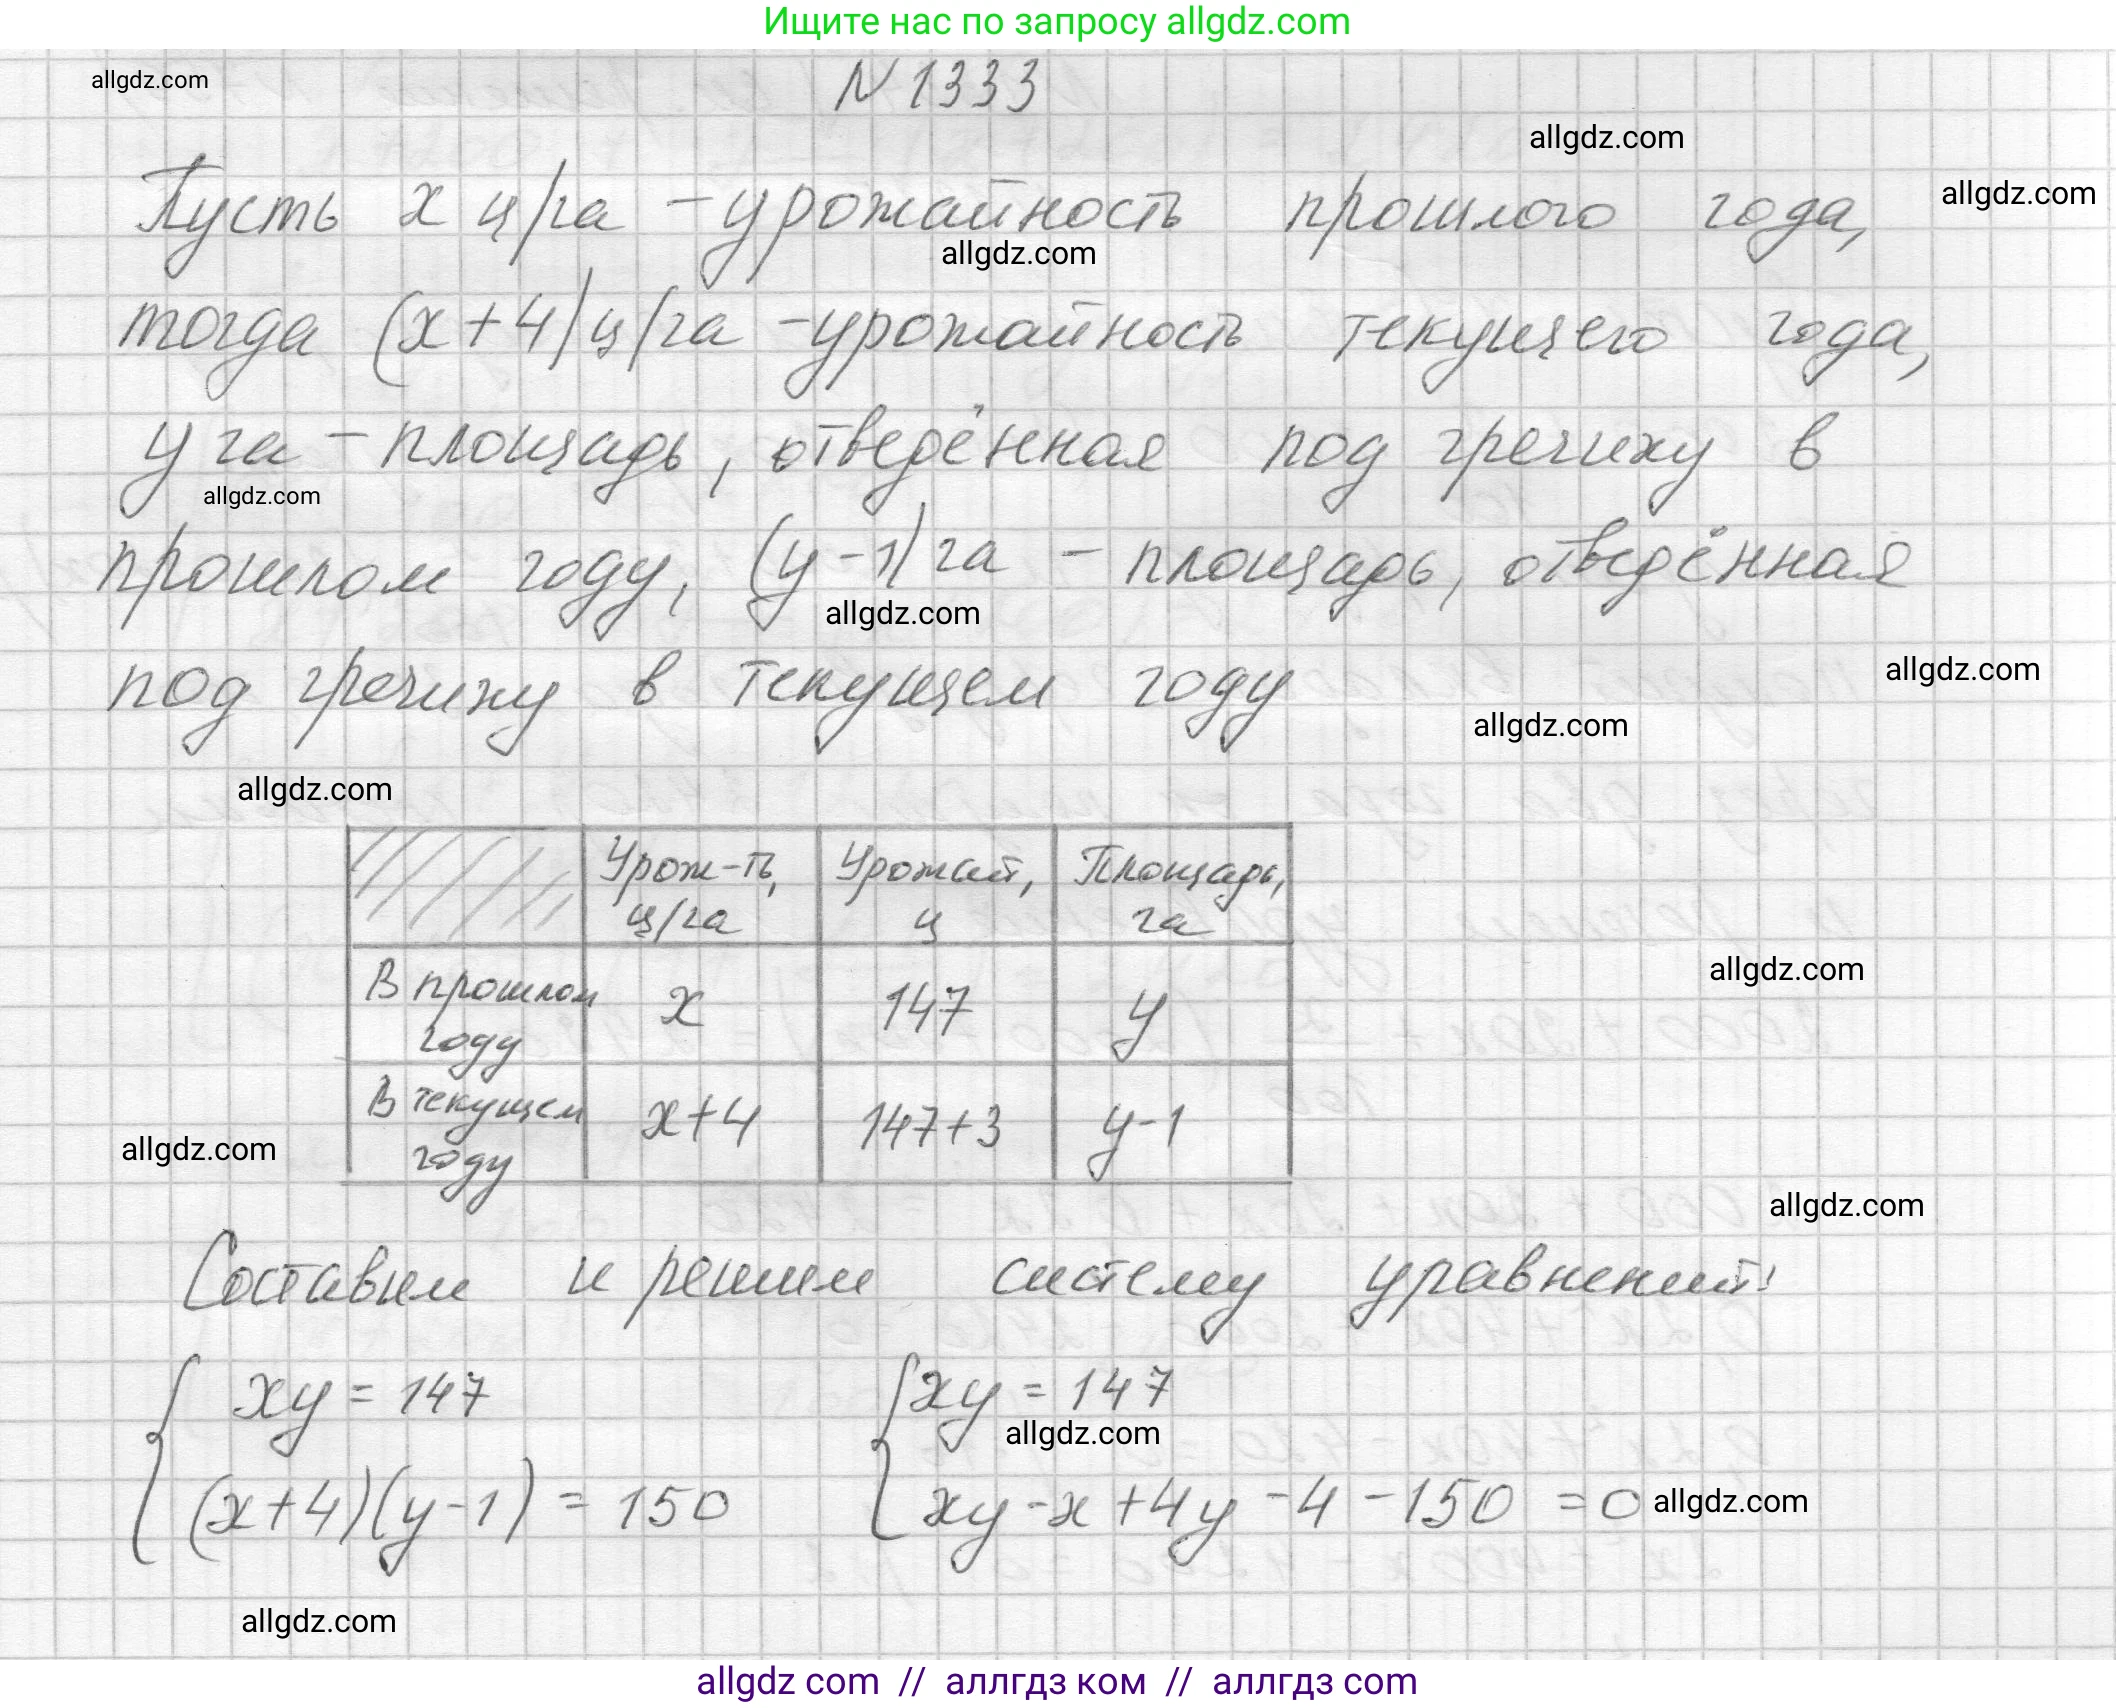 Ищите нас по запросу allgdz.com
allgdz.com
N 1333
allgdz.com
Пусть x ц/га – урожайность прошлого года,
allgdz.com
allgdz.com
тогда (x+4) ц/га – урожайность текущего года,
y га – площадь, отведённая под гречиху в
allgdz.com
прошлом году, (y-1) га – площадь, отведённая
allgdz.com
под гречиху в текущем году
allgdz.com
allgdz.com
allgdz.com
Урож-ть, ц/га Урожай, ц Площадь, га
allgdz.com
В прошлом году x 147 y
В текущем году x+4 147+3 y-1
allgdz.com
allgdz.com
Составим и решим систему уравнений:
xy = 147 xy = 147
allgdz.com
(x+4)(y-1) = 150 xy - x + 4y - 4 - 150 = 0
allgdz.com
allgdz.com
allgdz com // аллгдз ком // аллгдз com